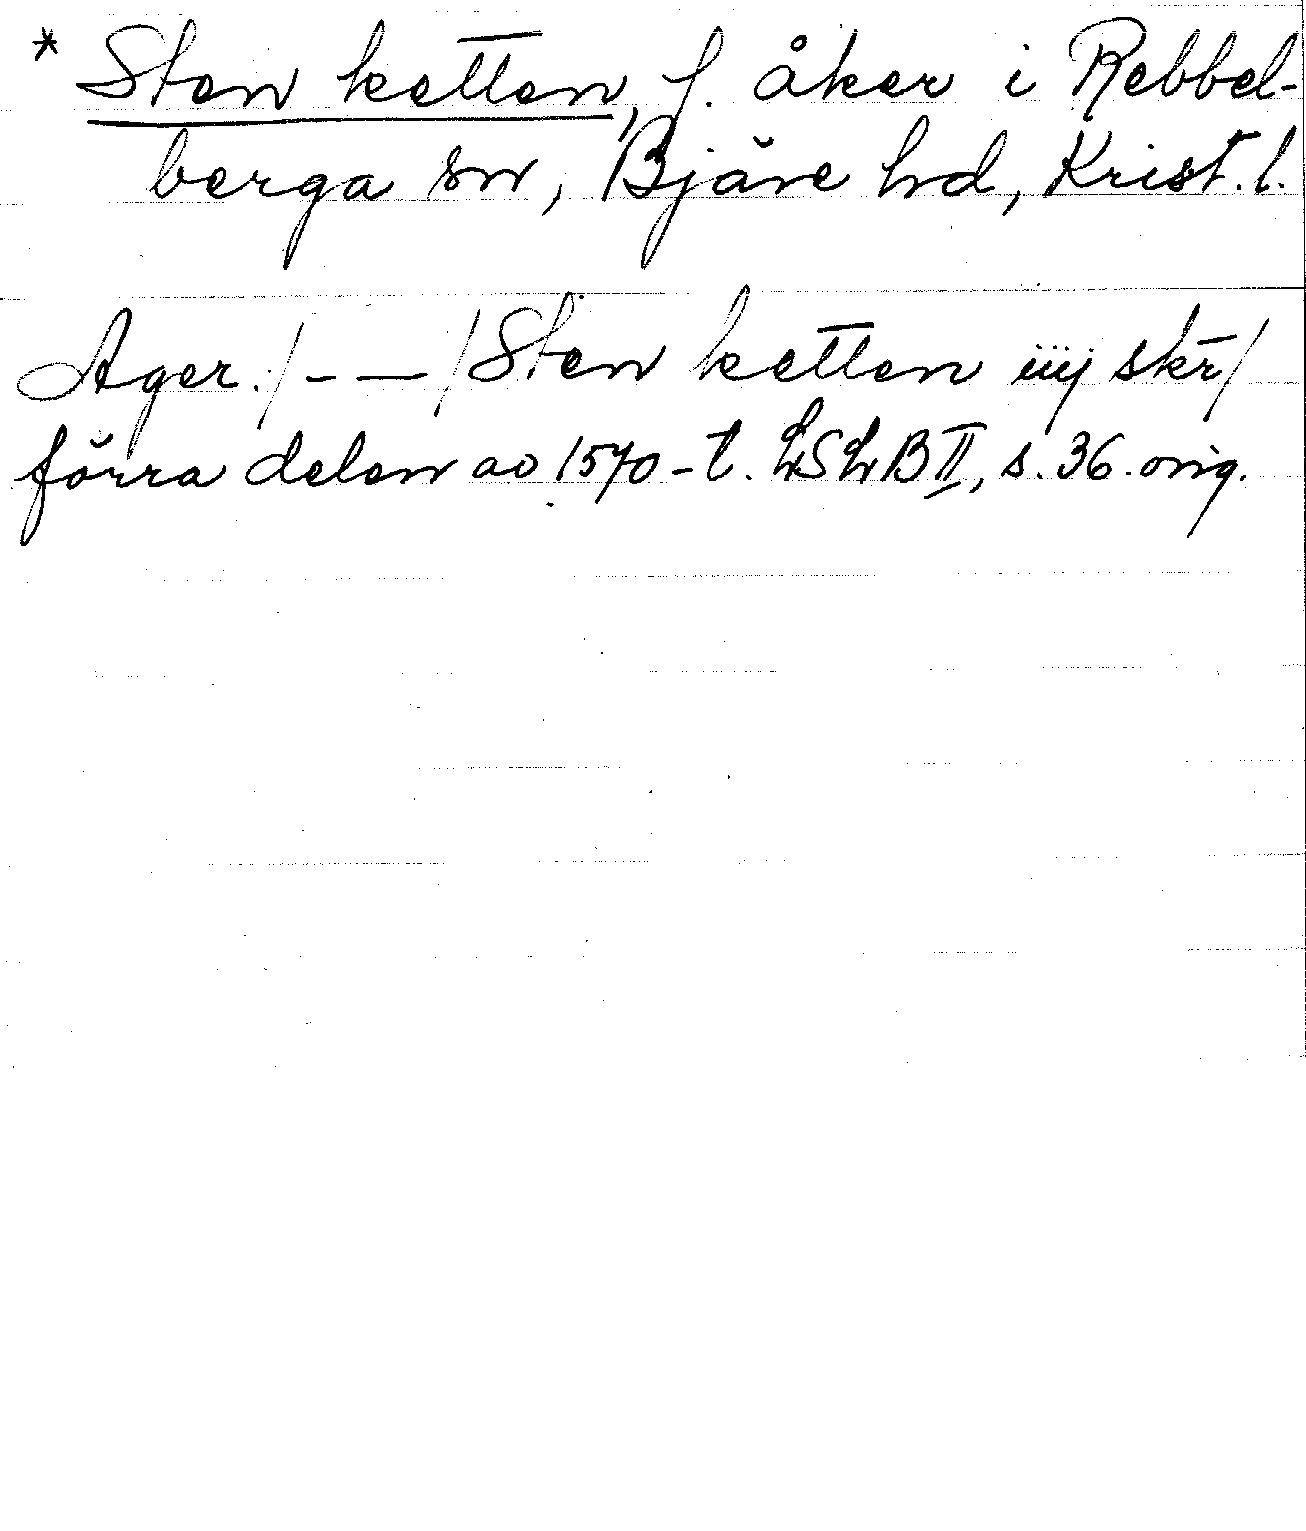 * Sten ketten, f. åker i Rebbel-
berga sn, Bjäre hd, Krist. l.
Ager. /- — /Sten ketten iiij skr/
förra delen av 1570-t. LSLB II, s. 36. orig.